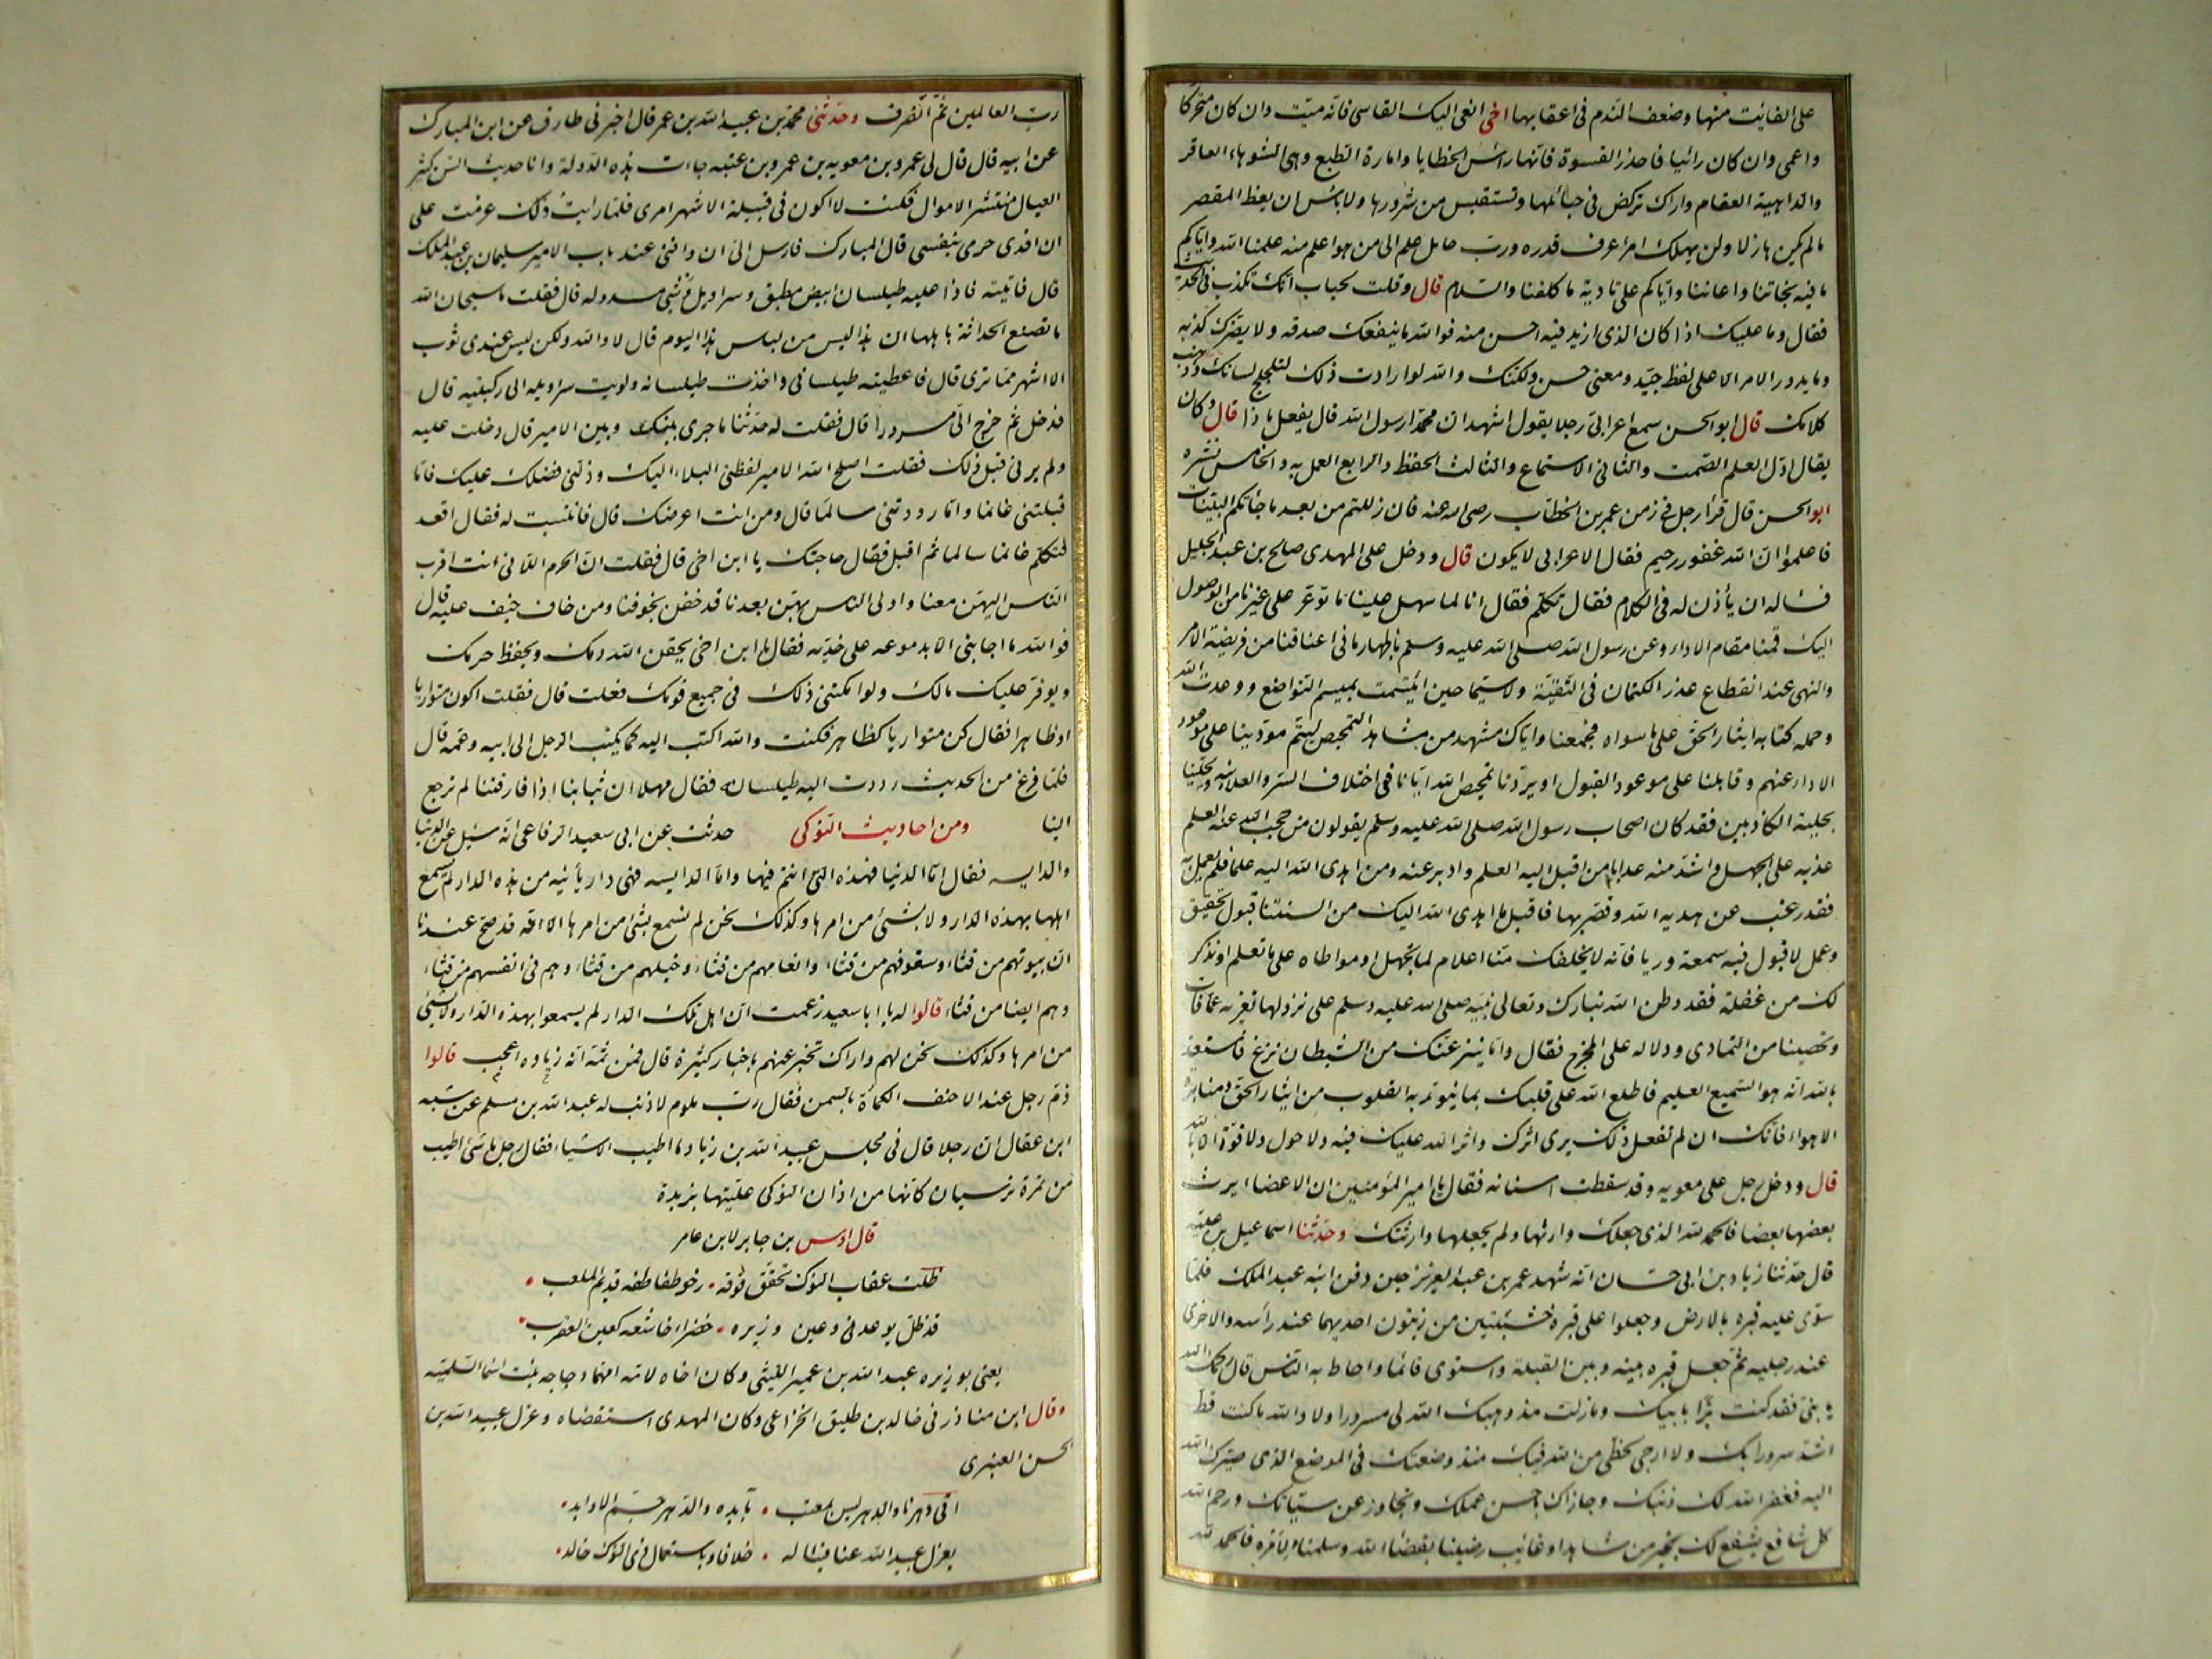 على الفائت منها وضعف الندم فى اعقابها اخى انعى اليك القاسى فانه ميت وان كان متحركا
واعمى وان كان رائيا فاحذر القسوة فانها راس الخطايا وامارة الطبع وهى الشوهاء العاقر
والداهية العقام واراك تركض فى حبائلها وتستقبس من شررها ولا باس ان يعظ المقصر
مالم يكن هازلا ولن يهلك امرا عرف قدره ورب حامل علم الى من هو اعلم منه علمنا الله واياكم
ما فيه نجاتنا واعاننا واياكم على تادية ما كلفنا والسلام قال وقلت لحباب انك تكذب فى الحديث
فقال وما عليك اذا كان الذى ازيد فيه احسن منه فوالله ما ينفعك صدقه ولا يضرك كذبه
وما يدور الامر الا على لفظ جيد ومعنى حسن ولكنك والله لو ارادت ذلك لتلجلج لسانك وذهب
كلامك قال ابو الحسن سمع اعرابى رجلا يقول اشهد ان محمدا رسول الله قال يفعل ما ذا قال وكان
يقال اول العلم الصمت والثانى الاستماع والثالث الحفظ والرابع العمل به والخامس نشره
ابو الحسن قال قرا رجل فى زمن عمر بن الخطاب رضى الله عنه فان زللتم من بعد ما جائتكم البينات
فاعلموا ان الله غفور رحيم فقال الاعرابى لا يكون قال ودخل على المهدى صالح بن عبد الجليل
فساله ان يأذن له فى الكلام فقال تكلم فقال انا لما سهل علينا ما توعر على غيرنا من الوصول
اليك قمنا مقام الاداء وعن رسول الله صلى الله عليه وسلم باظهار ما فى اعناقنا من فريضة الامر
والنهى عند انقطاع عذر الكتمان فى التقية ولا سيما حين اتسمت بميسم التواضع ووعدت الله
وحمله كتابه ايثار الحق على ما سواه فجمعنا واياك مشهد من مشاهد التمحيص ليتم مؤدينا على موعود
الاداء عنهم وقابلنا على موعود القبول او يردنا تمحيص الله ايانا فى اختلاف السر والعلانيه ويحلينا
بحلية الكاذبين فقد كان اصحاب رسول الله صلى الله عليه وسلم يقولون من حجب الله عنه العلم
عذبه على الجهل واشد منه عدابا من اقبل اليه العلم وادبر عنه ومن اهدى الله اليه علما فلم يعمل به
فقد رغب عن هديه الله وقصر بها فاقبل ما اهدى الله اليك من السنتنا قبول تحقيق
وعمل لا قبول فيه سمعة وريا فانه لا يخلفك منا اعلام لما تجهل او مواطاه على ما تعلم او نذكر
لك من غفلة فقد وطن الله تبارك وتعالى نبيه صلى الله عليه وسلم على نزولها تعزيه عما فات
وتحصينا من التمادى ودلاله على المخرج فقال واما ينزغنك من الشيطان نزغ فاستعذ
بالله انه هو السميع العليم فاطلع الله على قلبك بما ينوّر به القلوب من ايثار الحق ومنابذة
الاهواء فانك ان لم تفعل ذلك يرى اثرك واثر الله عليك فيه ولا حول ولا قوة الا بالله
قال ودخل رجل على معويه وقد سقطت اسنانه فقال يا امير المؤمنين ان الاعضاء يرث
بعضها بعضا فالحمد لله الذى جعلك وارثها ولم يجعلها وارثتك وحدثنا اسماعيل بن علية
قال حدثنا زياد بن ابى حسان انه شهد عمر بن عبد العزيز حين دفن ابنه عبد الملك فلما
سوى عليه قبره بالارض وجعلوا على قبره خشبتين من زيتون احديهما عند رأسه والاخرى
عند رجليه ثم جعل قبره بينه وبين القبلة واستوى قائما واحاط به الناس قال رحمك الله
يا بنى فقد كنت برا بابيك وما زلت مذ وهبك الله لى مسرورا ولا والله ما كنت قط
اشد سرورا بك ولا ارجى لحظى من الله فيك منذ وضعتك فى الموضع الذى صيرك الله
اليه فغفر الله لك ذنبك وجازاك باحسن عملك وتجاوز عن سيئاتك ورحم الله
كل شافع يشفع لك بخير من شاهد او غائب رضينا بقضاء الله وسلمنا لامره فالحمد لله
رب العالمين ثم انصرف وحدثنى محمد بن عبيد الله بن عمر قال اخبرنى طارف عن ابن المبارك
عن ابيه قال قال لى عمرو بن معويه بن عمرو بن عتبه جاءت هذه الدولة وانا حديث السن كثير
العيال منتشر الاموال فكنت لا اكون فى قبيلة الا شهر امرى فلما رايت ذلك عزمت على
ان افدى حرمى بنفسى قال المبارك فارسل الى ان وافنى عند باب الامير سليمان بن عبد الملك
قال فاتيته فاذا عليه طيلسان ابيض مطبق وسراويل وشى مسدوله قال فقلت ما سبحان الله
ما تصنع الحداثة باهلها ان هذا ليس من لباس هذا اليوم قال لا والله ولكن ليس عندى ثوب
الا اشهر مما ترى قال فاعطيته طيلسانى واخذت طيلسانه ولويت سراويله الى ركبتيه قال
فدخل ثم خرج الى مسرورا قال فقلت له حدثنا ما جرى بينك وبين الامير قال دخلت عليه
ولم يرنى قبل ذلك فقلت اصلح الله الامير لفظتنى البلاد اليك ودلنى فضلك عليك فاما
قبلتنى غانما واما رددتنى سالما قال ومن انت اعرفك قال فانتسبت له فقال اقعد
فتكلم غانما سالما ثم اقبل فقال حاجتك يا ابن اخى قال فقلت ان الحرم اللاتى انت اقرب
الناس اليهن معنا واولى الناس بهن بعدنا قد خفن بخوفنا ومن خاف خيف عليه قال
فوالله ما اجابنى الا بدموعه على خديه فقال يا ابن اخى يحقن الله دمك ويحفظ حرمك
ويوفر عليك مالك ولو امكننى ذلك فى جميع قومك فعلت قال فقلت اكون متواريا
او ظاهرا فقال كن متواريا كظاهر فكنت والله اكتب اليه كما يكتب الرجل الى ابيه وعمه قال
فلما فرغ من الحديث رددت اليه طيلسانه فقال مهلا ان ثيابنا اذا فارقتنا لم ترجع
الينا ومن احاديث النوكى حدثت عن ابى سعيد الرفاعى انه سئل عن الدنيا
والدايسه فقال اما الدنيا فهذه التى انتم فيها واما الدايسه فهى دار بائنه من هذه الدار لم يسمع
اهلها بهذه الدار ولا بشئ من امرها وكذلك نحن لم نسمع بشئ من امرها الا انه قد صح عندنا
ان بيوتهم من قثاء وسقوفهم من قثاء وانعامهم من قثاء وخيلهم من قثاء وهم فى انفسهم من قثاء
وهم ايضا من قثاء قالوا له يا ابا سعيد زعمت ان اهل تلك الدار لم يسمعوا بهذه الدار ولا بشئ
من امرها وكذلك نحن لهم واراك تخبر عنهم باخبار كثيرة قال فمن ثمة انه زياده اعجب قالوا
ذم رجل عند الاحنف الكماة بالسمن فقال رب ملوم لا ذنب له عبد الله بن مسلم عن شبه
ابن عقال ان رجلا قال فى مجلس عبيد الله بن زياد ما اطيب الاشياء فقال رجل ما شئ اطيب
من تمرة نرسيان كانها من اذان النوكى علتيها بزبدة
قال اوس بن جابر لابن عامر
ظلت عقاب النوك تخفق فوقه رخو طفاطفه قديم الملعب
قد ظل يوعدنى وعين وزيره خضراء خاشعه كعين العقرب
يعنى بوزيره عبد الله بن عمير الليثى وكان اخاه لامه امهما دجاجه بنت اسما السلمية
وقال ابن مناذر فى خالد بن طليق الخزاعى وكان المهدى استقضاه وعزل عبيد الله بن
الحسن العنبرى
اتى دهرنا والدهر ليس بمعتب بآبده والدهر جم الاوابد
بعزل عبيد الله عنا فياله خلافا وباستعمال ذى النوك خالد